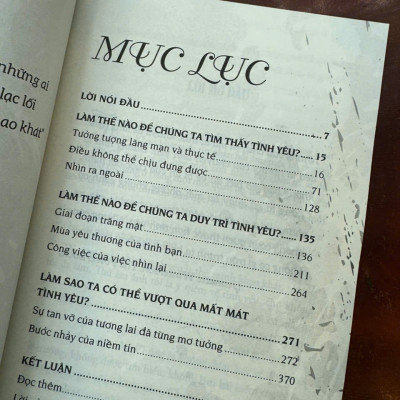 những ai
lạc lối
ao khát"
MỤC LỤC
LỜI NÓI ĐẦU 7
LÀM THẾ NÀO ĐỂ CHÚNG TA TÌM THẤY TÌNH YÊU? 15
Tưởng tượng lãng mạn và thực tế 16
Điều không thể chịu đựng được 71
Nhìn ra ngoài 128
LÀM THẾ NÀO ĐỂ CHÚNG TA DUY TRÌ TÌNH YÊU? 135
Giai đoạn trăng mật 136
Mùa yêu thương của tình bạn 211
Công việc của việc nhìn lại 264
LÀM SAO TA CÓ THỂ VƯỢT QUA MẤT MÁT
TÌNH YÊU? 271
Sự tan vỡ của tương lai đã từng mơ tưởng 272
Bước nhảy của niềm tin 370
KẾT LUẬN
Đọc thêm